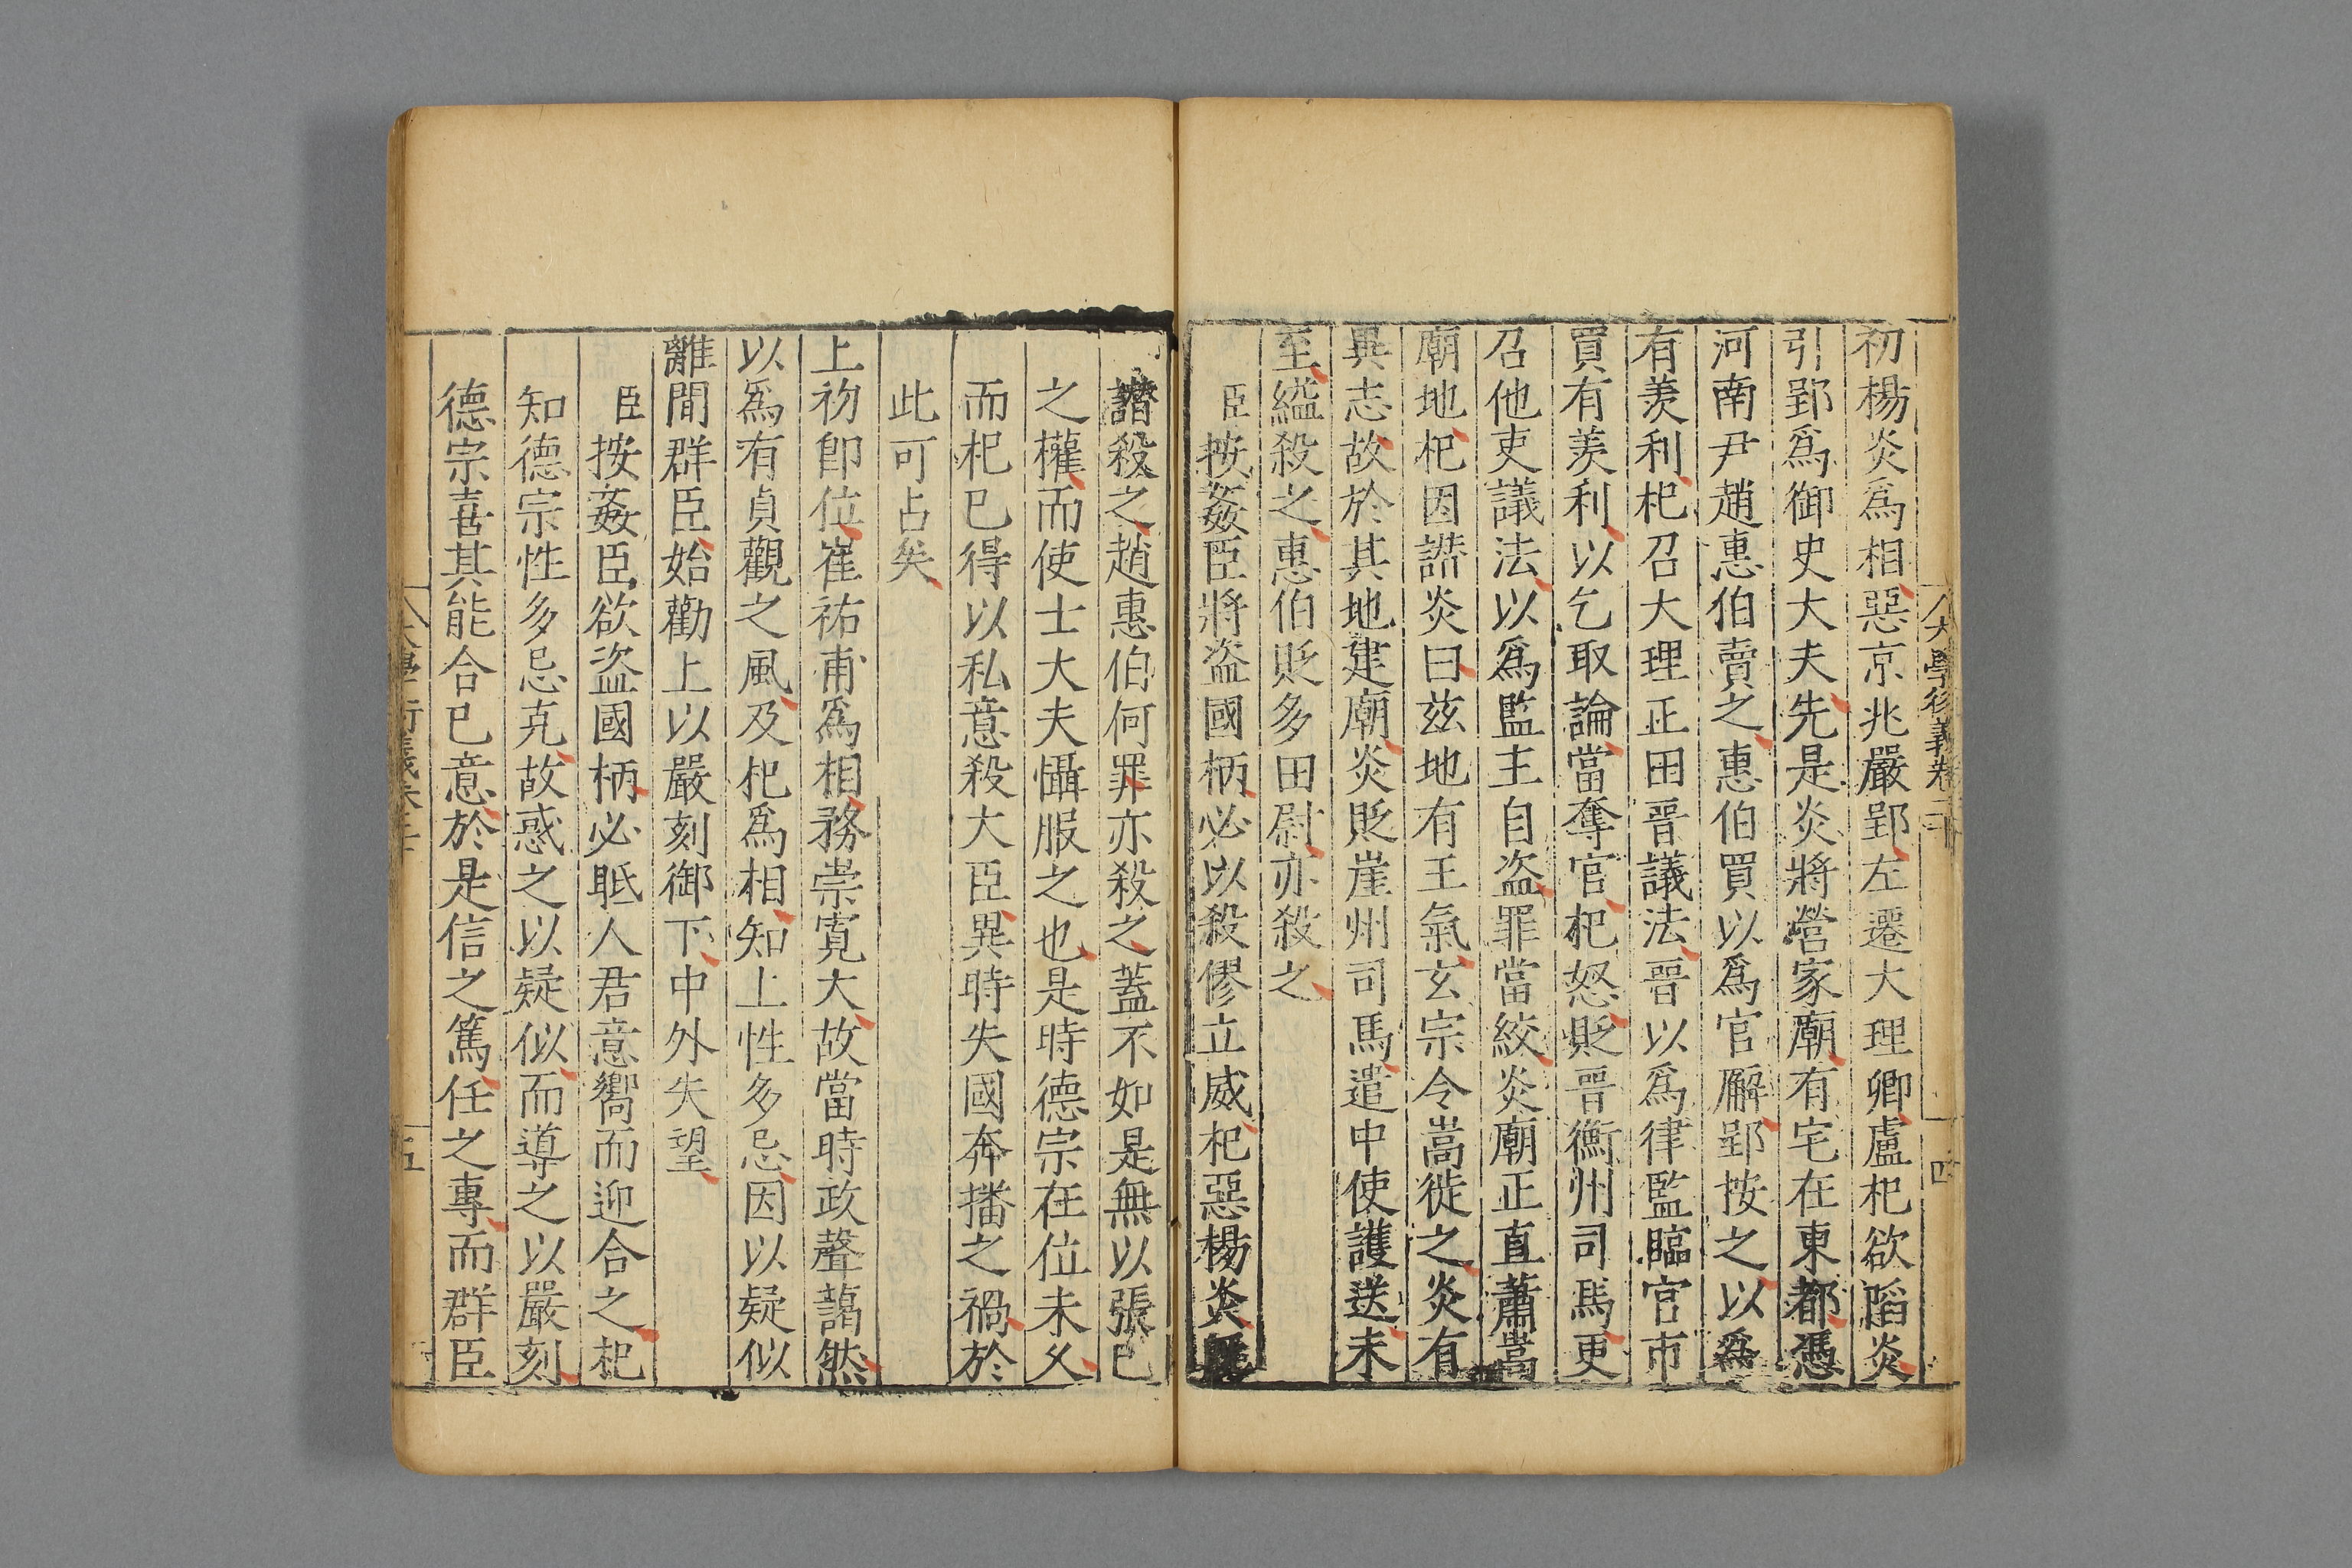 初楊炎爲相惡京兆嚴郢左遷大理卿盧杞欲䧟炎
引郢爲御史大夫先是炎將營家廟有宅在東都憑
河南尹趙惠伯賣之惠伯買以爲官廨郢按之以爲
有羨利杞召大理正田晋議法晋以爲律監臨官市
買有羨利以乞取論當奪官杞怒貶晋衡州司馬更
召他吏議法以爲監主自盗罪當絞炎廟正直蕭嵩
廟地杞因譖炎曰兹地有王氣玄宗令嵩徙之炎有
異志故於其地建廟炎貶崖州司馬遣中使護送未
至縊殺之惠伯貶多田尉亦殺之
臣按姦臣將盗國柄必以殺僇立威杞惡楊炎
譖殺之趙惠伯何罪亦殺之蓋不如是無以張己
之權而使士大夫懾服之也是時德宗在位未乆
而杞已得以私意殺大臣異時失國奔播之禍於
此可占矣
上初即位崔祐甫爲相務崇寛大故當時政聲藹然
以爲有貞觀之風及杞爲相知上性多忌因以疑似
離間群臣始勸上以嚴刻御下中外失望
臣按姦臣欲盗國柄必眂人君意嚮而迎合之杞
知德宗性多忌克故惑之以疑似而導之以嚴刻
德宗喜其能合已意於是信之篤任之專而群臣